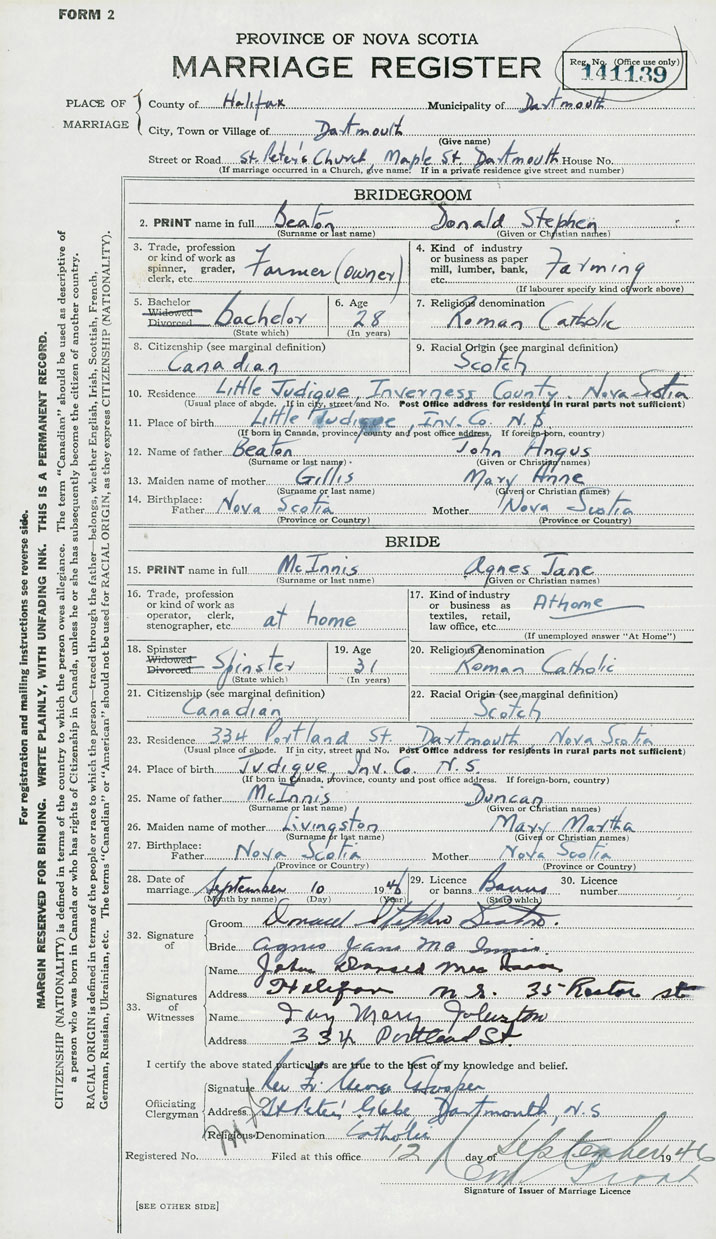 FORM 2
PROVINCE OF NOVA SCOTIA
MARRIAGE REGISTER
Reg. No. (Office use only)
141139
PLACE OF MARRIAGE
County of Halifax Municipality of Dartmouth
City, Town or Village of Dartmouth
(Give name)
Street or Road St. Peter's Church, Maple St. Dartmouth House No.
(If marriage occurred in a Church, give name. If in a private residence give street and number)
BRIDEGROOM
2. PRINT name in full Beaton Donald Stephen
(Surname or last name) (Given or Christian names)
3. Trade, profession or kind of work as spinner, grader, clerk, etc. Farmer (owner)
4. Kind of industry or business as paper mill, lumber, bank, etc. Farming
(If labourer specify kind of work above)
5. Bachelor Widowed Divorced Bachelor
(State which)
6. Age 28
(In years)
7. Religious denomination
Roman Catholic
8. Citizenship (see marginal definition)
Canadian
9. Racial Origin (see marginal definition)
Scotch
10. Residence Little Judique, Inverness County. Nova Scotia
(Usual place of abode. If in city, street and No. Post Office address for residents in rural parts not sufficient)
11. Place of birth Little Judique, Inv. Co. N.S.
(If born in Canada, province, county and post office address. If foreign-born, country)
12. Name of father Beaton John Angus
(Surname or last name) (Given or Christian names)
13. Maiden name of mother Gillis Mary Anne
(Surname or last name) (Given or Christian names)
14. Birthplace: Father Nova Scotia Mother Nova Scotia
(Province or Country) (Province or Country)
BRIDE
15. PRINT name in full McInnis Agnes Jane
(Surname or last name) (Given or Christian names)
16. Trade, profession or kind of work as operator, clerk, stenographer, etc. at home
17. Kind of industry or business as textiles, retail, law office, etc. At home
(If unemployed answer "At Home")
18. Spinster Widowed Divorced Spinster
(State which)
19. Age 31
(In years)
20. Religious denomination
Roman Catholic
21. Citizenship (see marginal definition)
Canadian
22. Racial Origin (see marginal definition)
Scotch
23. Residence 334 Portland St. Dartmouth, Nova Scotia
(Usual place of abode. If in city, street and No. Post Office address for residents in rural parts not sufficient)
24. Place of birth Judique, Inv. Co. N.S.
(If born in Canada, province, county and post office address. If foreign-born, country)
25. Name of father McInnis Duncan
(Surname or last name) (Given or Christian names)
26. Maiden name of mother Livingston Mary Martha
(Surname or last name) (Given or Christian names)
27. Birthplace: Father Nova Scotia Mother Nova Scotia
(Province or Country) (Province or Country)
28. Date of marriage September 10 1946
(Month by name) (Day) (Year)
29. Licence or banns Banns
(State which)
30. Licence number
32. Signature of
Groom Donald Stephen Beaton.
Bride Agnes Jane Mc Innis
33. Signatures of Witnesses
Name John Mac
Address Halifax N.S. 35 st
Name Mary Johnston
Address 334 Portland St
I certify the above stated particulars are true to the best of my knowledge and belief.
Officiating Clergyman
Signature Rev. Fr. Cooper
Address St Peter's Glebe Dartmouth, N.S
Religious Denomination Catholic
Registered No. Filed at this office 12 day of September 1946
Signature of Issuer of Marriage Licence
[SEE OTHER SIDE]
For registration and mailing instructions see reverse side.
MARGIN RESERVED FOR BINDING. WRITE PLAINLY, WITH UNFADING INK. THIS IS A PERMANENT RECORD.
CITIZENSHIP (NATIONALITY) is defined in terms of the country to which the person owes allegiance. The term "Canadian" should be used as descriptive of
a person who was born in Canada or who has rights of Citizenship in Canada, unless he or she has subsequently become the citizen of another country.
RACIAL ORIGIN is defined in terms of the people or race to which the person—traced through the father—belongs, whether English, Irish, Scottish, French,
German, Russian, Ukrainian, etc. The terms "Canadian" or "American" should not be used for RACIAL ORIGIN, as they express CITIZENSHIP (NATIONALITY).